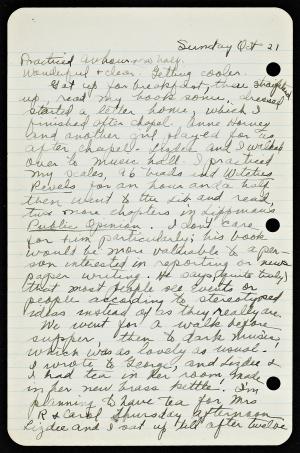 Sunday Oct 21
Practiced an hour + a half.
Wonderful + clear. Getting cooler.
Got up for breakfast, then straightened
up, read my book some, dressed
started a letter home, which I
finished after chapel. Anne Harvey
and another girl played for us
after chapel. Lizdee and I walked
over to Music hall. I practiced
my scales, and Witches
Revels for an hour and a half,
then went to the Lib and read
two more chapters in Lippmann's
Public Opinion. I don't care
for him particularly; his book
would be more valuable to a per-
son interested in reporting or news
paper writing. He says (quite truly)
that most people see events or
people according to stereotyped
ideas instead of as they really are.
We went for a walk before
supper, then to dark music,
which was as lovely as usual.
I wrote to George, and Lizdee &
I had tea in her room, made
in her new brass kettle. I'm
planning to have tea for Mrs
R & Carol Thursday afternoon
Lizdee and I sat up till after twelve